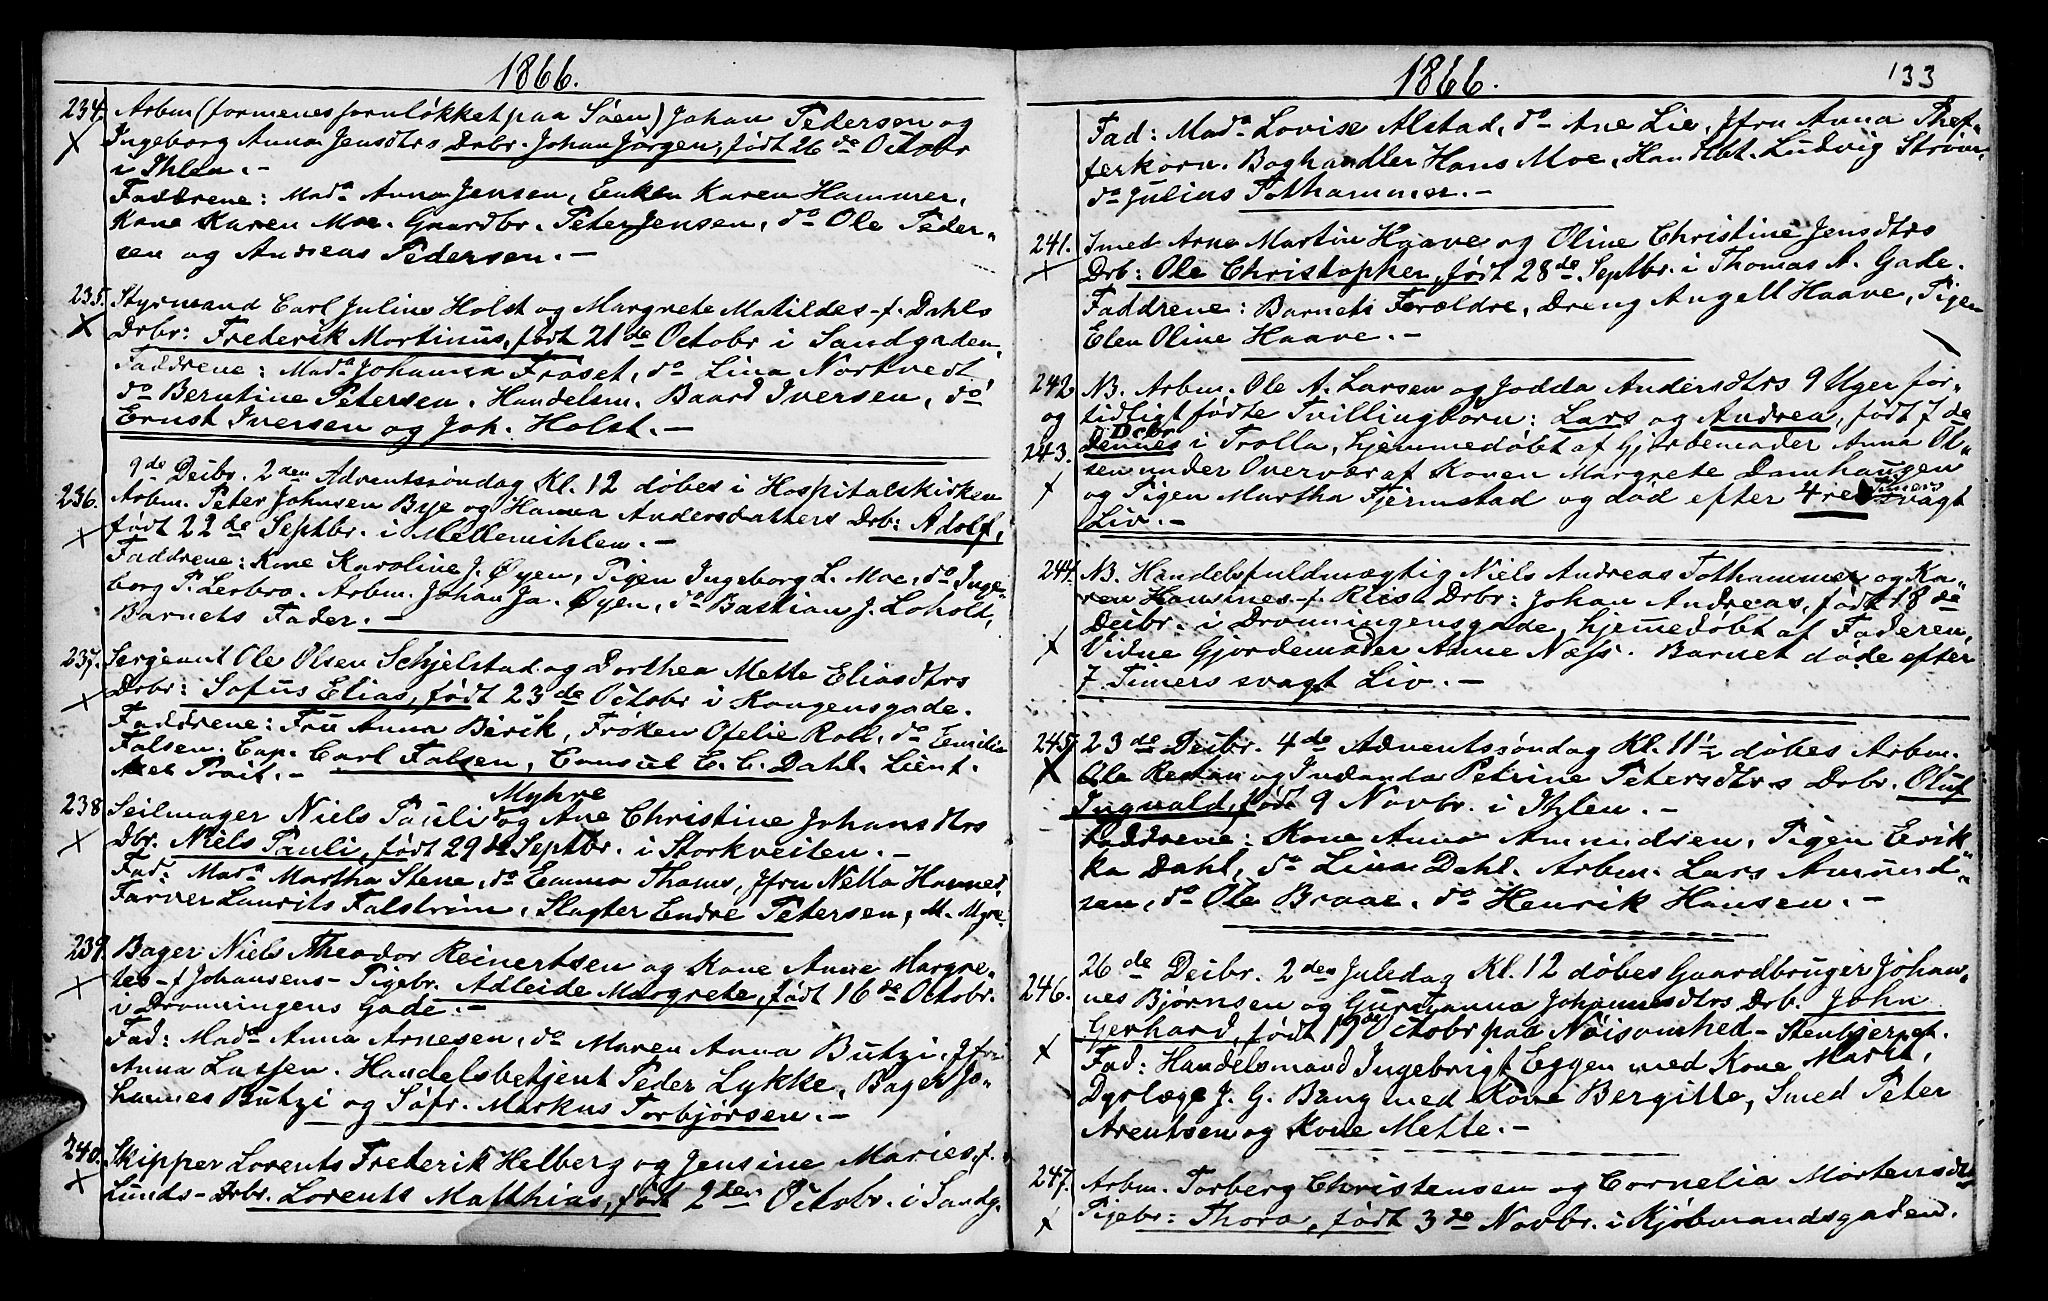 1866.
234. Arbm (formenes foruløkket paa Søen) Johan Pedersen og
Ingeborg Anna Jensdtrs Drbr. Johan Jørgen, født 26 de Octobr
i Ihlen.-
Faddrene: Mad.a Anna Jensen, Enken Karen Hammer,
Kone Karen Moe. Gaardbr. Peter Jensen, do Ole Peder-
sen og Andreas Pedersen.-
235. Styrmand Carl Julius Holst og Margrete Matildes -f. Dahls
Drbr: Frederik Mortinus, født 21 de Octobr i Sandgaden.
Faddrene: Mad.a Johanna Frøset, do Lina Nortvedt,
do Berntine Petersen. Handelsm. Baard Iversen, do
Ernst Iversen og Joh. Holst.-
9de Decbr. 2den Adventssøndag Kl. 12 døbes i Hospitalskirken
236. Arbm. Peter Johnsen Bye og Hanna Andersdatters Drb: Adolf,
født 22 de Septbr. i Mellemihlen.-
Faddrene: Kone Karoline J. Øyen, Pigen Ingeborg L. Moe, do Inge-
borg P. Lerbro. Arbm. Johan Ja. Øyen, do Bastian J. Loholt,
Barnets Fader.-
237. Sergeant Ole Olsen Schjelstad og Dorthea Mette Eliasdtrs
Drbr: Sofus Elias, født 23 de Octobr i Kongensgade.
Faddrene: Fru Anna Birik, Frøken Ofelie Roll, do Emilie
Falsen. Cap. Carl Falsen, Consul E. C. Dahl. Lieut.
Axel Prait.-
Myhre
238 Seilmager Niels Pauli og Ane Christine Johansdtrs
Dbr. Niels Pauli, født 29 de Septbr. i Storkveiten.-
Fad: Mad.a Martha Stene, do Emma Thams, Jfru Nella Hammer,
Farver Laurits Falstrøm, Slagter Endre Petersen, M. Myre.
239. Bager Niels Theodor Reinertsen og Kone Anne Margre-
tes -f Johansens- Pigebr. Adleide Margrete, født 16 de Octobr.
i Dronningens Gade.-
Fad: Mad.a Anna Arnesen, do Maren Anna Butzi, Jfr.
Anna Lassen. Handelsbetjent Peder Lykke, Bager Jo-
hannes Butzi og Søfr. Markus Torbjørsen.-
240. Skipper Lorents Frederik Helberg og Jensine Maries f.
Lunds- Drbr. Lorents Matthias, født 2den Octobr. i Sandg.
1866.
133
Fad: Mad.a Lovise Alstad, do Ane Lie, Jfru Anna Phef-
ferkorn. Boghandler Hans Moe, Handlbt. Ludvig Strøm,
do Julius Tothammer.-
241. Smed Arne Martin Haave og Oline Christine Jensdtrs
Drb: Ole Christopher, født 28 de Septbr. i Thomas A. Gade.
Faddrene: Barnets Forældre, Dreng Angell Haave, Pigen
Elen Oline Haave.-
242 NB. Arbm. Ole A. Larsen og Jodda Andersdtrs 9 Uger for-
og tidligt fødte Tvillingbørn: Lars og Andrea, født 7 de
Decbr
243. Dennes i Trolla, hjemmedøbt af Gjorbemoder Anna Ol-
sen under Overvær af Konen Margrete Damhaugen
og Pigen Martha Fjermstad og død efter 4re Timers svagt
Liv.-
244. NB. Handelsfuldmægtig Niels Andreas Tothammer og Ka-
ren Hansines -f. Klis- Drbr: Johan Andreas, født 18 de
Decbr. i Dronningensgade, hjemmedøbt af Faderen,
Vidne Gjordemoder Anne Næss. Barnet døde efter
7 Timers svagt Liv.-
245. 23 de Decbr. 4de Adventssøndag Kl. 11½ døbes Arbm.
Ole Restan og Indianda Petrine Petersdtrs Drbr. Oluf
Ingvald, født 9 Novbr. i Ihlen.-
Faddrene: Kone Anna Amundsen, Pigen Erik-
ka Dahl, do Lina Dahl. Arbm. Lars Amund-
sen, do Ole Braae, do Henrik Hansen.-
26 de Decbr. 2den Juledag Kl. 12 døbes Gaardbruger Johan-
246. nes Bjørnsen og Guruanna Johannesdtrs Drb. John
Gerhard, født 19 de Octobr paa Nøisomhed- Stenbjerget.
Fad: Handelsmand Ingebrigt Eggen med Kone Marit,
Dyrlæge J. G. Bang med Kone Bergitte, Smed Peter
Arentsen og Kone Mette.-
247. Arbm. Torberg Christensen og Cornelia Mortensdtrs
Pigebr: Thora, født 3 de Novbr. i Kjøbmandsgaden.